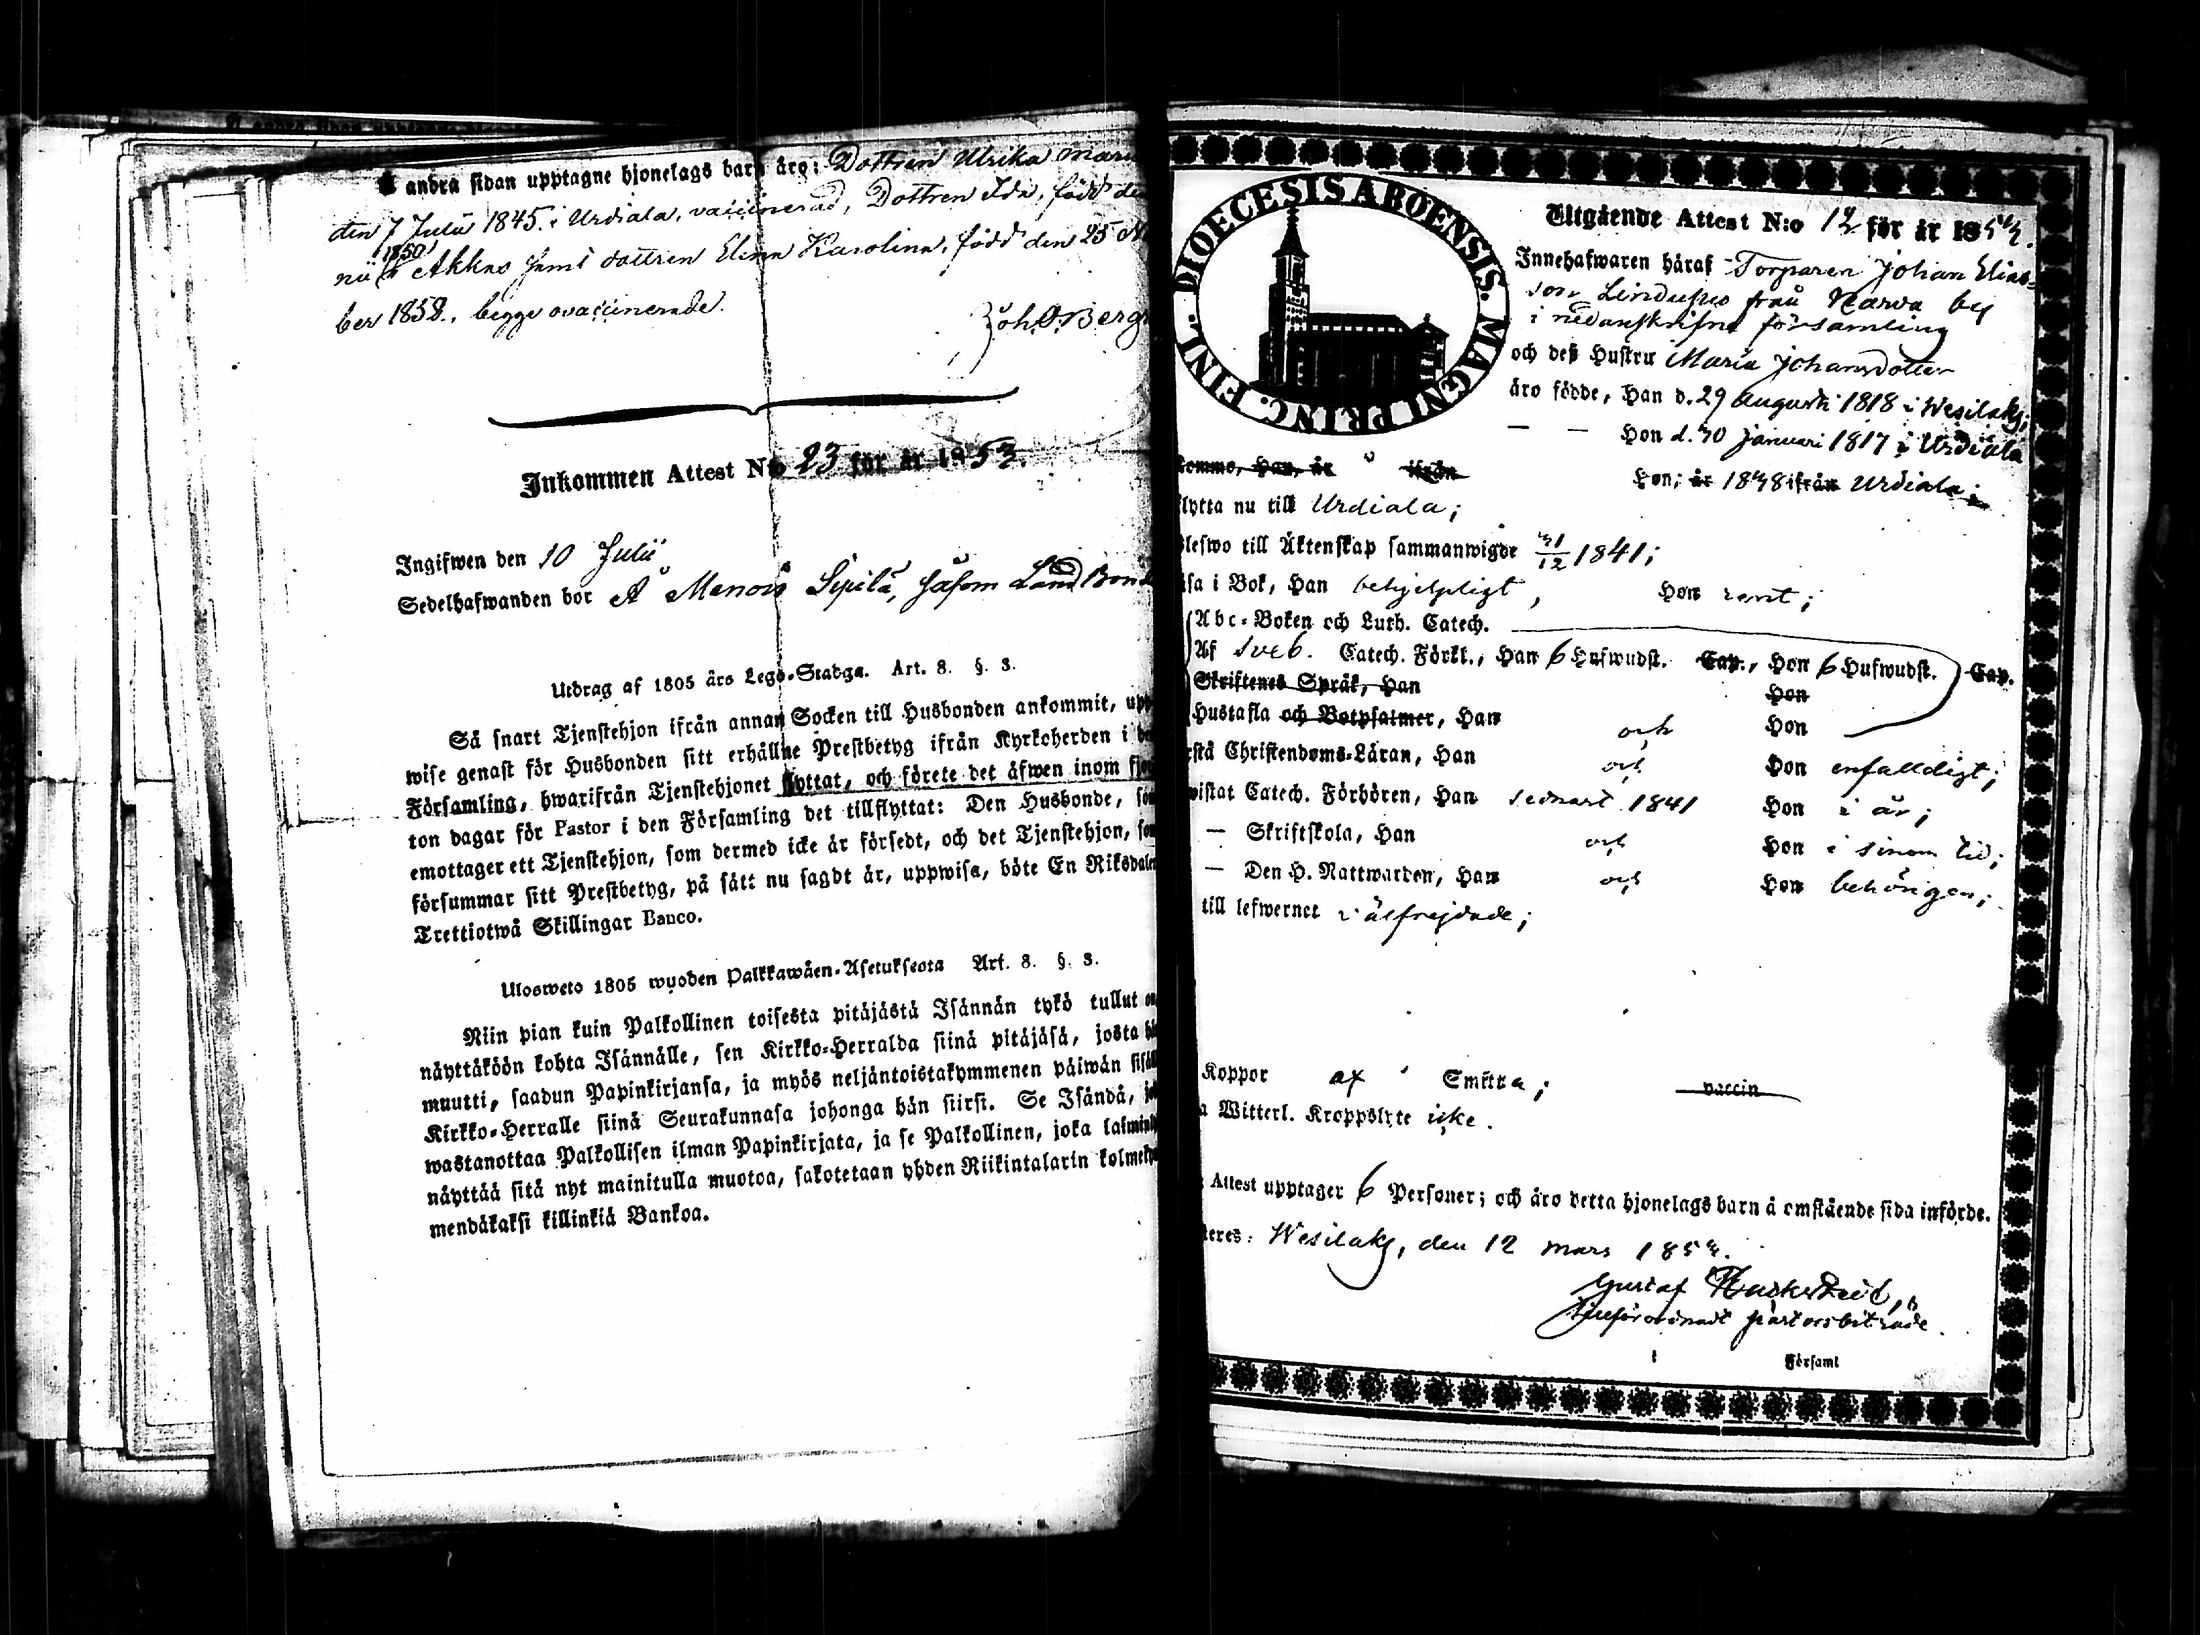 å andra sidan upptagne hjonelags barn äro: Dottren Ulrika Mari
den 7 Julii 1845 i Urdiala, vaccinerad, Dottren Ida, född de
1850
nii i Akkas samt dottren Elina Karolina, född den 25
ber 1852, begge ovaccinerade.
Joh. O. Berg
Inkommen Attest N:o 23 för år 1853.
Ingifwen den 10 Julii
Sedelhafwanden bor å Menois Sipilä, såsom Land Bond
Utdrag af 1805 års Lego-Stadga. Art. 3. §. 3.
Så snart Tjenstehjon ifrån annan Socken till Husbonden ankommit, upp
wise genast för Husbonden sitt erhållne Prestbetyg ifrån Kyrkoherden i de
Församling, hwarifrån Tjenstehjonet flyttat, och förete det äfwen inom fjor
ton dagar för Pastor i den Församling det tillflyttat: Den Husbonde, som
emottager ett Tjenstehjon, som dermed icke är försedt, och det Tjenstehjon, som
försummar sitt Prestbetyg, på sätt nu sagdt är, uppwisa, böte En Riksdaler
Trettiotwå Skillingar Banco.
Ulosweto 1805 wuoden Palkkawäen-Asetuksesta Art. 3. §. 3.
Niin pian kuin Palkollinen toisesta pitäjästä Isännän tykö tullut on
näyttäköön kohta Isännälle, sen Kirkko-Herralda siinä pitäjäsä, josta hän
muutti, saadun Papinkirjansa, ja myös neljäntoistakymmenen päiwän sisäll
Kirkko-Herralle siinä Seurakunnasa johonga hän siirsi. Se Isändä, jo
wastanottaa Palkollisen ilman Papinkirjata, ja se Palkollinen, joka laimin
näyttää sitä nyt mainitulla muotoa, sakotetaan yhden Riikintalarin kolmeky
mendäkaksi killinkiä Bankoa.
DIOECESIS ABOENSIS. MAGNI PRINC. FINL.
Utgående Attest N:o 12 för år 1853.
Innehafwaren häraf Torparen Johan Elias-
son Lindufus från Narva by
i nedanskrifne församling
och deß Hustru Maria Johansdotter
äro födde, Han d. 29 Augusti 1818 i Wesilaks;
— — Hon d. 30 Januari 1817 i Urdiala
komne, Han, år ifrån Hon; år 1838 ifrån Urdiala;
flytta nu till Urdiala;
blefwo till Äktenskap sammanwigde 31/12 1841;
äsa i Bok, Han behjelpligt, Hon rent;
Abc-Boken och Luth. Catech.
Af Sveb. Catech. Förkl., Han 6 Hufwudst. Cap., Hon 6 Hufwudst. Cap.
Skriftenes Språk, Han Hon
Hustafla och Botpsalmer, Han och Hon
rstå Christendoms-Läran, Han och Hon enfalldigt;
wistat Catech. Förhören, Han sednast 1841 Hon i år;
— Skriftskola, Han och Hon i sinom tid;
— Den H. Nattwarden, Han och Hon behörigen;
till lefwernet välfrejdade;
Koppor af Smitta; vaccin
a Witterl. Kroppslyte icke.
Attest upptager 6 Personer; och äro detta hjonelags barn å omstående sida införde.
teres: Wesilaks, den 12 Mars 1853.
Gustaf
pastorsbiträde.
i Församl